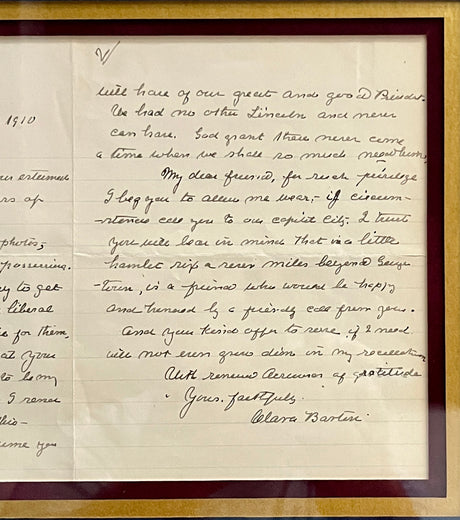 2/
1910
will have of our great and good President.
We had no other Lincoln and never
can have. God grant there never come
a time when we shall so much need him.
My dear friend, for such privilege
I beg you to allow me
-stances call you to our capitol City. I trust
you will bear in mind that in a little
hamlet six a seven miles beyond George
Town, is a friend who would be happy
and honored by a friendly call from you.
And your kind offer to serve if I need
will not even grow dim in my recollection
With renewed of gratitude
Yours faithfully.
Clara Barton
esteemed
photos;
possessing.
to get
liberal
for them,
at you
to be my
I
time you